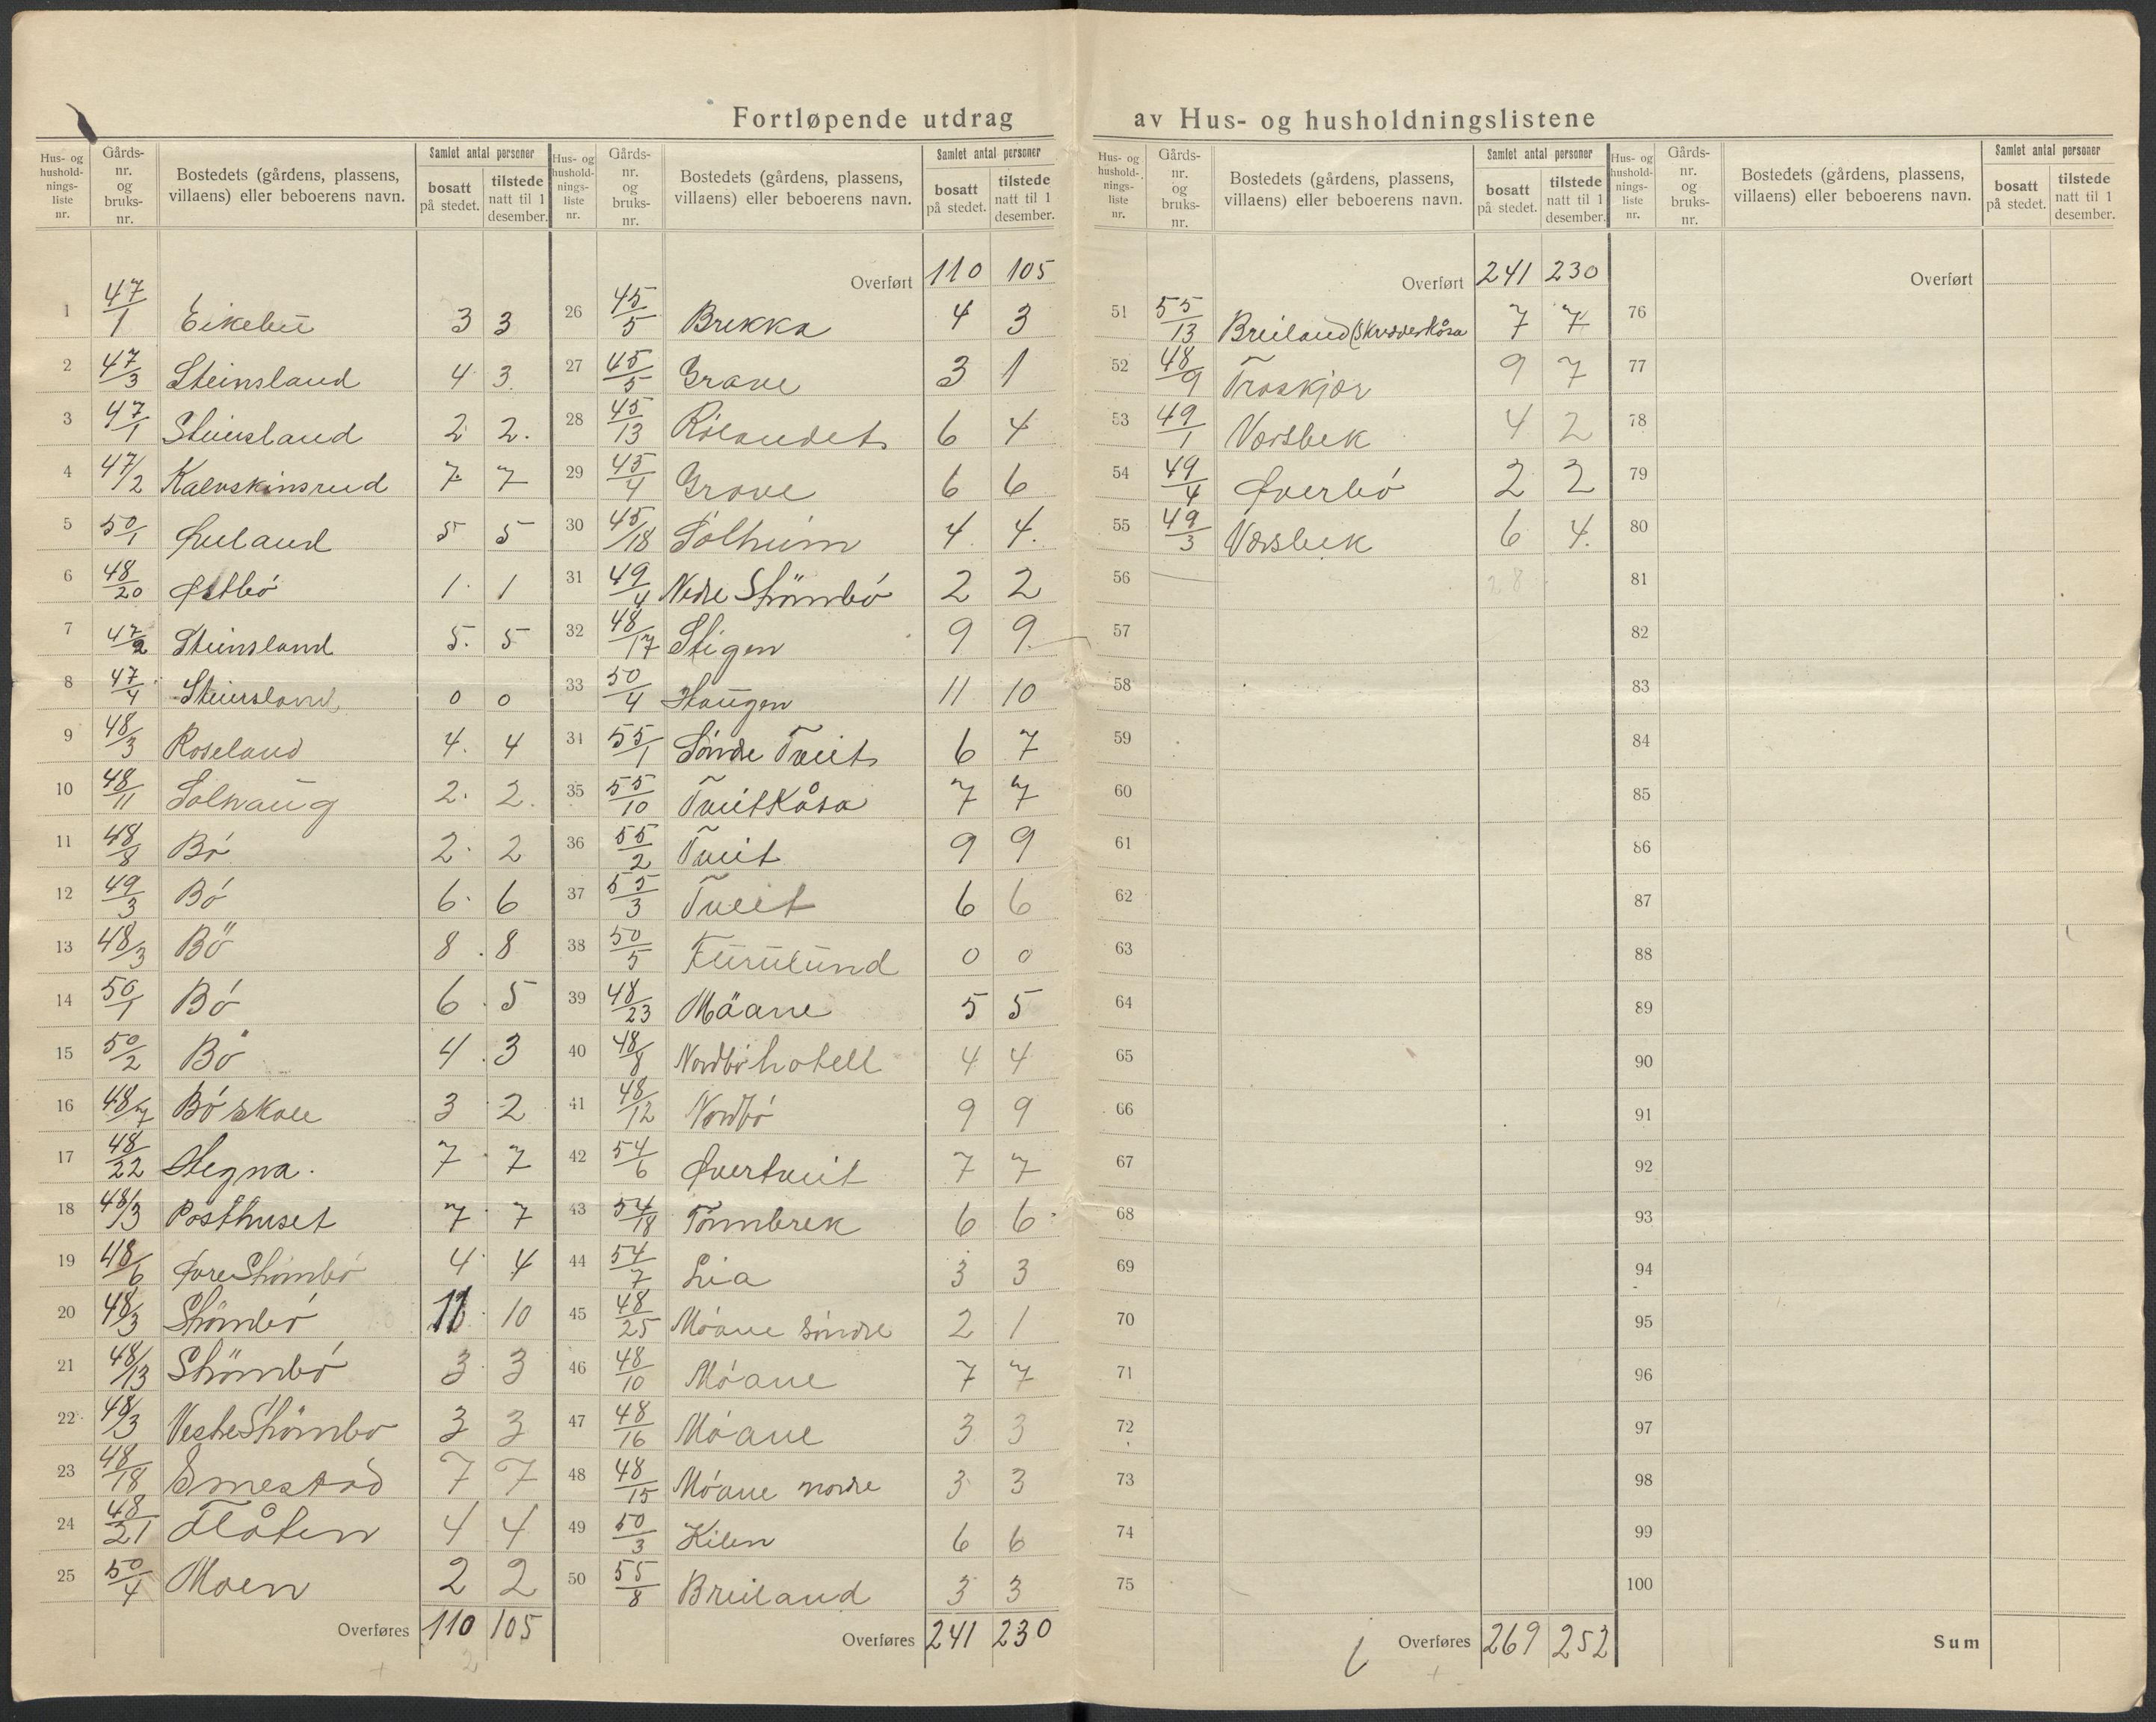 Fortløpende utdrag av Hus- og husholdningslistene
Hus- og husholdnings-liste nr. | Gårds-nr. og bruks-nr. | Bostedets (gårdens, plassens, villaens) eller beboerens navn. | Samlet antal personer: bosatt på stedet. | tilstede natt til 1 desember.
1 47/1 Eikebu 3 3
2 47/3 Steinsland 4 3.
3 47/1 Steinsland 2 2.
4 47/2 Kalvskinsrud 7 7
5 50/1 Øuland 5 5
6 48/20 Østbø 1 1
7 47/2 Steinsland 5. 5
8 47/4 Steinsland 0 0
9 48/3 Roseland 4. 4
10 48/11 Solhaug 2. 2.
11 48/8 Bø 2. 2
12 49/3 Bø 6. 6
13 48/3 Bö 8. 8
14 50/1 Bó 6. 5
15 50/2 Bø 4. 3
16 48/7 Bø skole 3 2
17 48/22 Hegna. 7 7
18 48/3 Posthuset 7 7
19 48/6 Øvre Strømbø 4 4
20 48/3 Strømbø 11 10
21 48/13 Strömbø 3 3
22 48/3 Vestre Strømbø 3 3
23 48/18 Smestad 7 7
24 48/21 Flåten 4 4
25 50/4 Moen 2 2
Overføres 110 105
Hus- og husholdnings-liste nr. | Gårds-nr. og bruks-nr. | Bostedets (gårdens, plassens, villaens) eller beboerens navn. | Samlet antal personer: bosatt på stedet. | tilstede natt til 1 desember.
Overført 110 105
26 45/5 Brekka 4 3
27 45/5 Grave 3 1
28 45/13 Rólandet 6 4
29 45/4 Grove 6 6
30 45/18 Solheim 4 4.
31 49/4 Nedre Strömbø 2 2
32 48/17 Stigen 9 9
33 50/4 Haugen 11 10
34 55/1 Søndre Tveit 6 7
35 55/10 Tveitkåsa 7 7
36 55/2 Tveit 9 9
37 55/3 Tveit 6 6
38 50/5 Furulund 0 0
39 48/23 Möane 5 5
40 48/8 Nordbø hotell 4 4
41 48/12 Nordbø 9 9
42 54/6 Øvertveit 7 7
43 54/18 Tønnbrek 6 6
44 54/7 Lia 3 3
45 48/25 Móane søndre 2 1
46 48/10 Móane 7 7
47 48/16 Móane 3 3
48 48/15 Móane nordre 3 3
49 50/3 Kilen 6 6
50 55/8 Breiland 3 3
Overføres 241 230
Hus- og husholdnings-liste nr. | Gårds-nr. og bruks-nr. | Bostedets (gårdens, plassens, villaens) eller beboerens navn. | Samlet antal personer: bosatt på stedet. | tilstede natt til 1 desember.
Overført 241 230
51 55/13 Breiland (Skredderkåsa 7 7
52 48/9 Traskjær 9 7
53 49/1 Vorsbek 4 2
54 49/4 Øverbø 2 2
55 49/3 Vorsbek 6 4.
56 28
57
58
59
60
61
62
63
64
65
66
67
68
69
70
71
72
73
74
75
Overføres 269 252
Hus- og husholdnings-liste nr. | Gårds-nr. og bruks-nr. | Bostedets (gårdens, plassens, villaens) eller beboerens navn. | Samlet antal personer: bosatt på stedet. | tilstede natt til 1 desember.
Overført
76
77
78
79
80
81
82
83
84
85
86
87
88
89
90
91
92
93
94
95
96
97
98
99
100
Sum